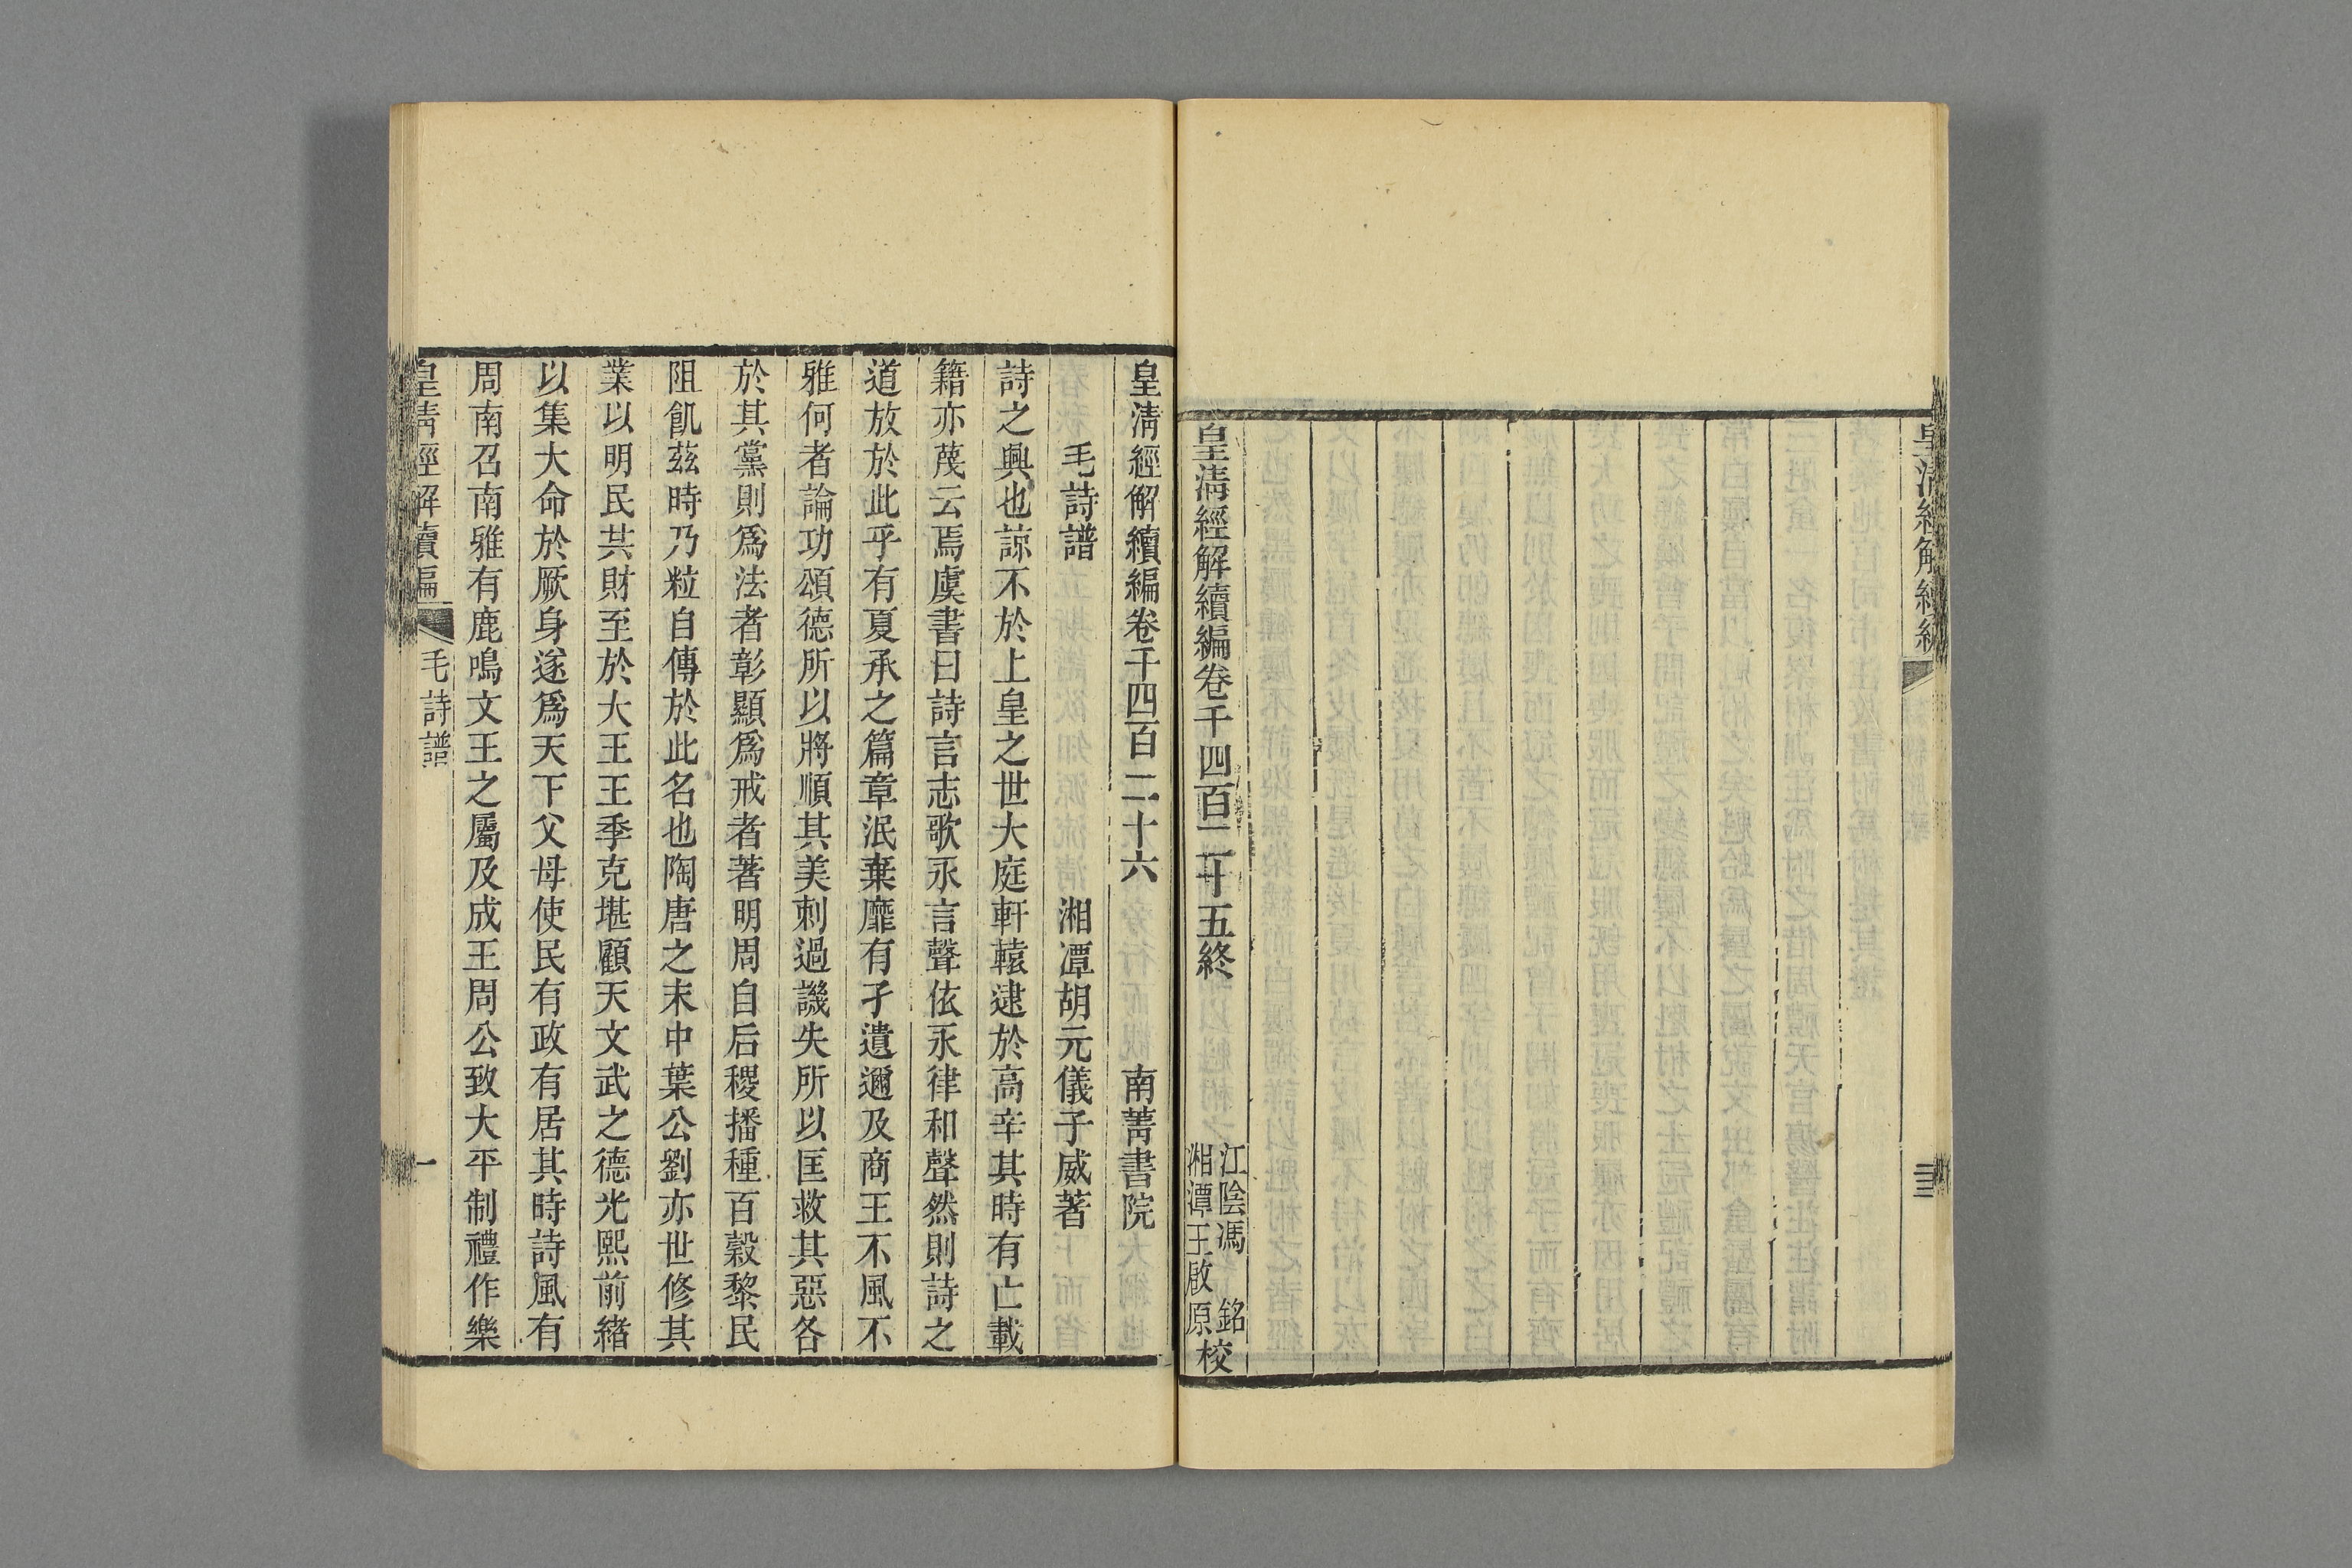 皇清經解續編
三
皇清經解續編卷千四百二十五終
江陰馮 銘
湘潭王啟原校
皇清經解續編卷千四百二十六 南菁書院
毛詩譜 湘潭胡元儀子威著
詩之興也諒不於上皇之世大庭軒轅逮於高辛其時有亡載
籍亦蔑云焉虞書曰詩言志歌永言聲依永律和聲然則詩之
道放於此乎有夏承之篇章泯棄靡有孑遺邇及商王不風不
雅何者論功頌德所以將順其美刺過譏失所以匡救其惡各
於其黨則爲法者彰顯爲戒者著明周自后稷播種百穀黎民
阻飢茲時乃粒自傳於此名也陶唐之末中葉公劉亦世修其
業以明民共財至於大王王季克堪顧天文武之德光熙前緒
以集大命於厥身遂爲天下父母使民有政有居其時詩風有
周南召南雅有鹿鳴文王之屬及成王周公致大平制禮作樂
皇清經解續編 毛詩譜 一